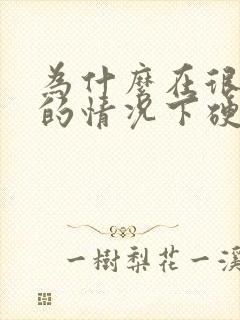 為什麼在很
的情况下硬
一樹梨花一溪